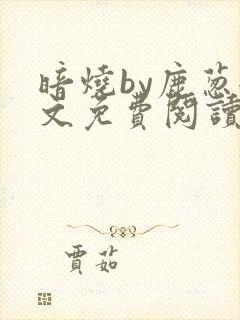 暗燒by鹿葱
文免費閱讀
賈茹